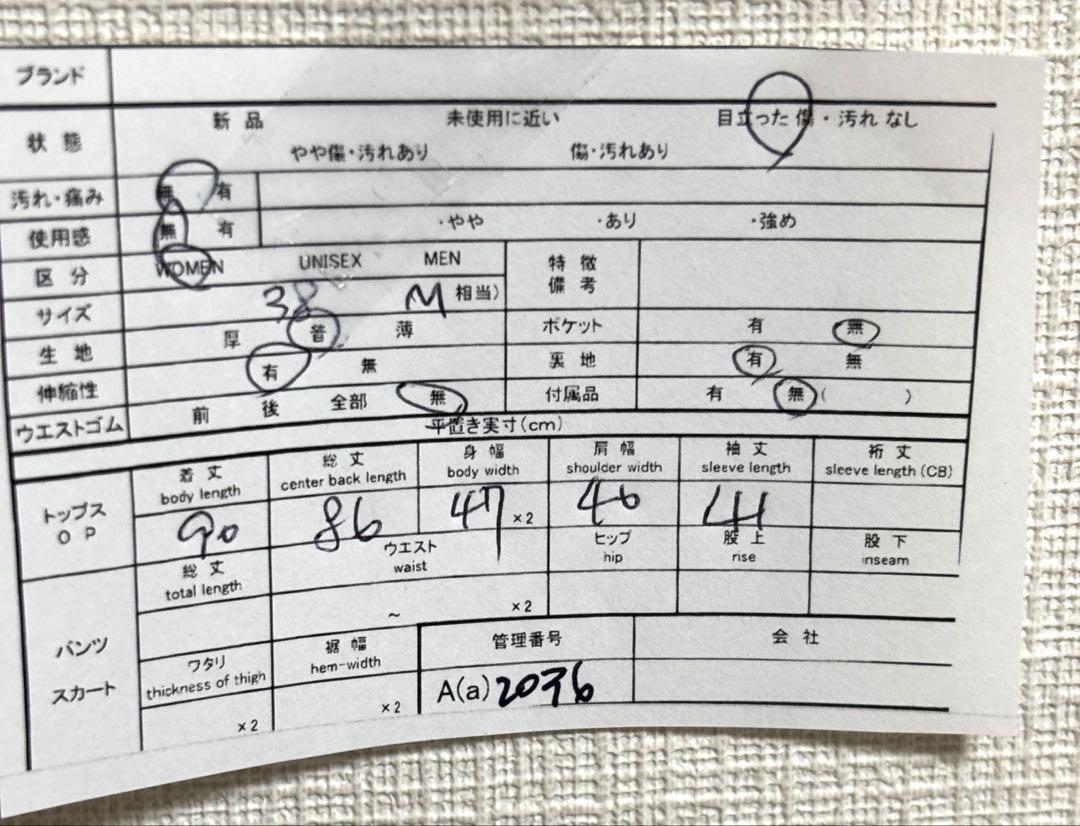 ブランド
状態 新品 未使用に近い 目立った傷・汚れなし
やや傷・汚れあり 傷・汚れあり
汚れ・痛み 無 有
使用感 無 有 ・やや ・あり ・強め
区分 WOMEN UNISEX MEN 特徴備考
サイズ 38 M 相当)
生地 厚 普 薄 ポケット 有 無
伸縮性 有 無 裏地 有 無
ウエストゴム 前 後 全部 無 付属品 有 無 ( )
平置き実寸(cm)
トップス OP 着丈 総丈 身幅 肩幅 袖丈 裄丈
body length center back length body width shoulder width sleeve length sleeve length (CB)
90 86 47 ×2 46 41
パンツ スカート 総丈 ウエスト ヒップ 股上 股下
total length waist hip rise inseam
~ ×2
ワタリ 裾幅 管理番号 会社
thickness of thigh hem-width
×2 ×2 A(a) 2036